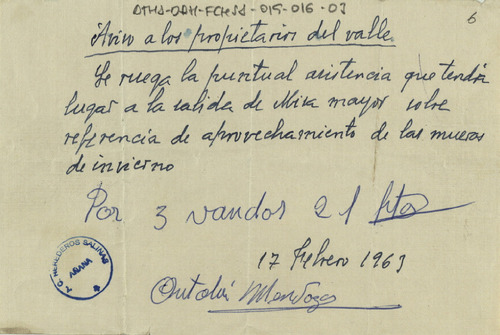 ATHA-DAH-FCHSS-015-016-03
6
Aviso a los propietarios del valle
Se ruega la puntual asistencia que tendrá
lugar a la salida de Misa mayor sobre
referencia de aprovechamiento de las mueras
de invierno
Por 3 vandos 21
17 Febrero 1963
Mendoza
HEREDEROS SALINAS
AÑANA